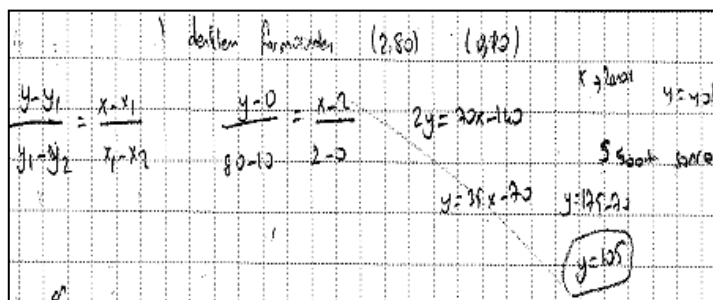 1 denklem formundan (2,80) (0,10)
y-y₁/y₁-y₂ = x-x₁/x₁-x₂
y-0/80-10 = x-2/2-0
2y=70x-140
y=35x-70
x → zaman
y = yol
5 saat sonra
y=175-70
y=105